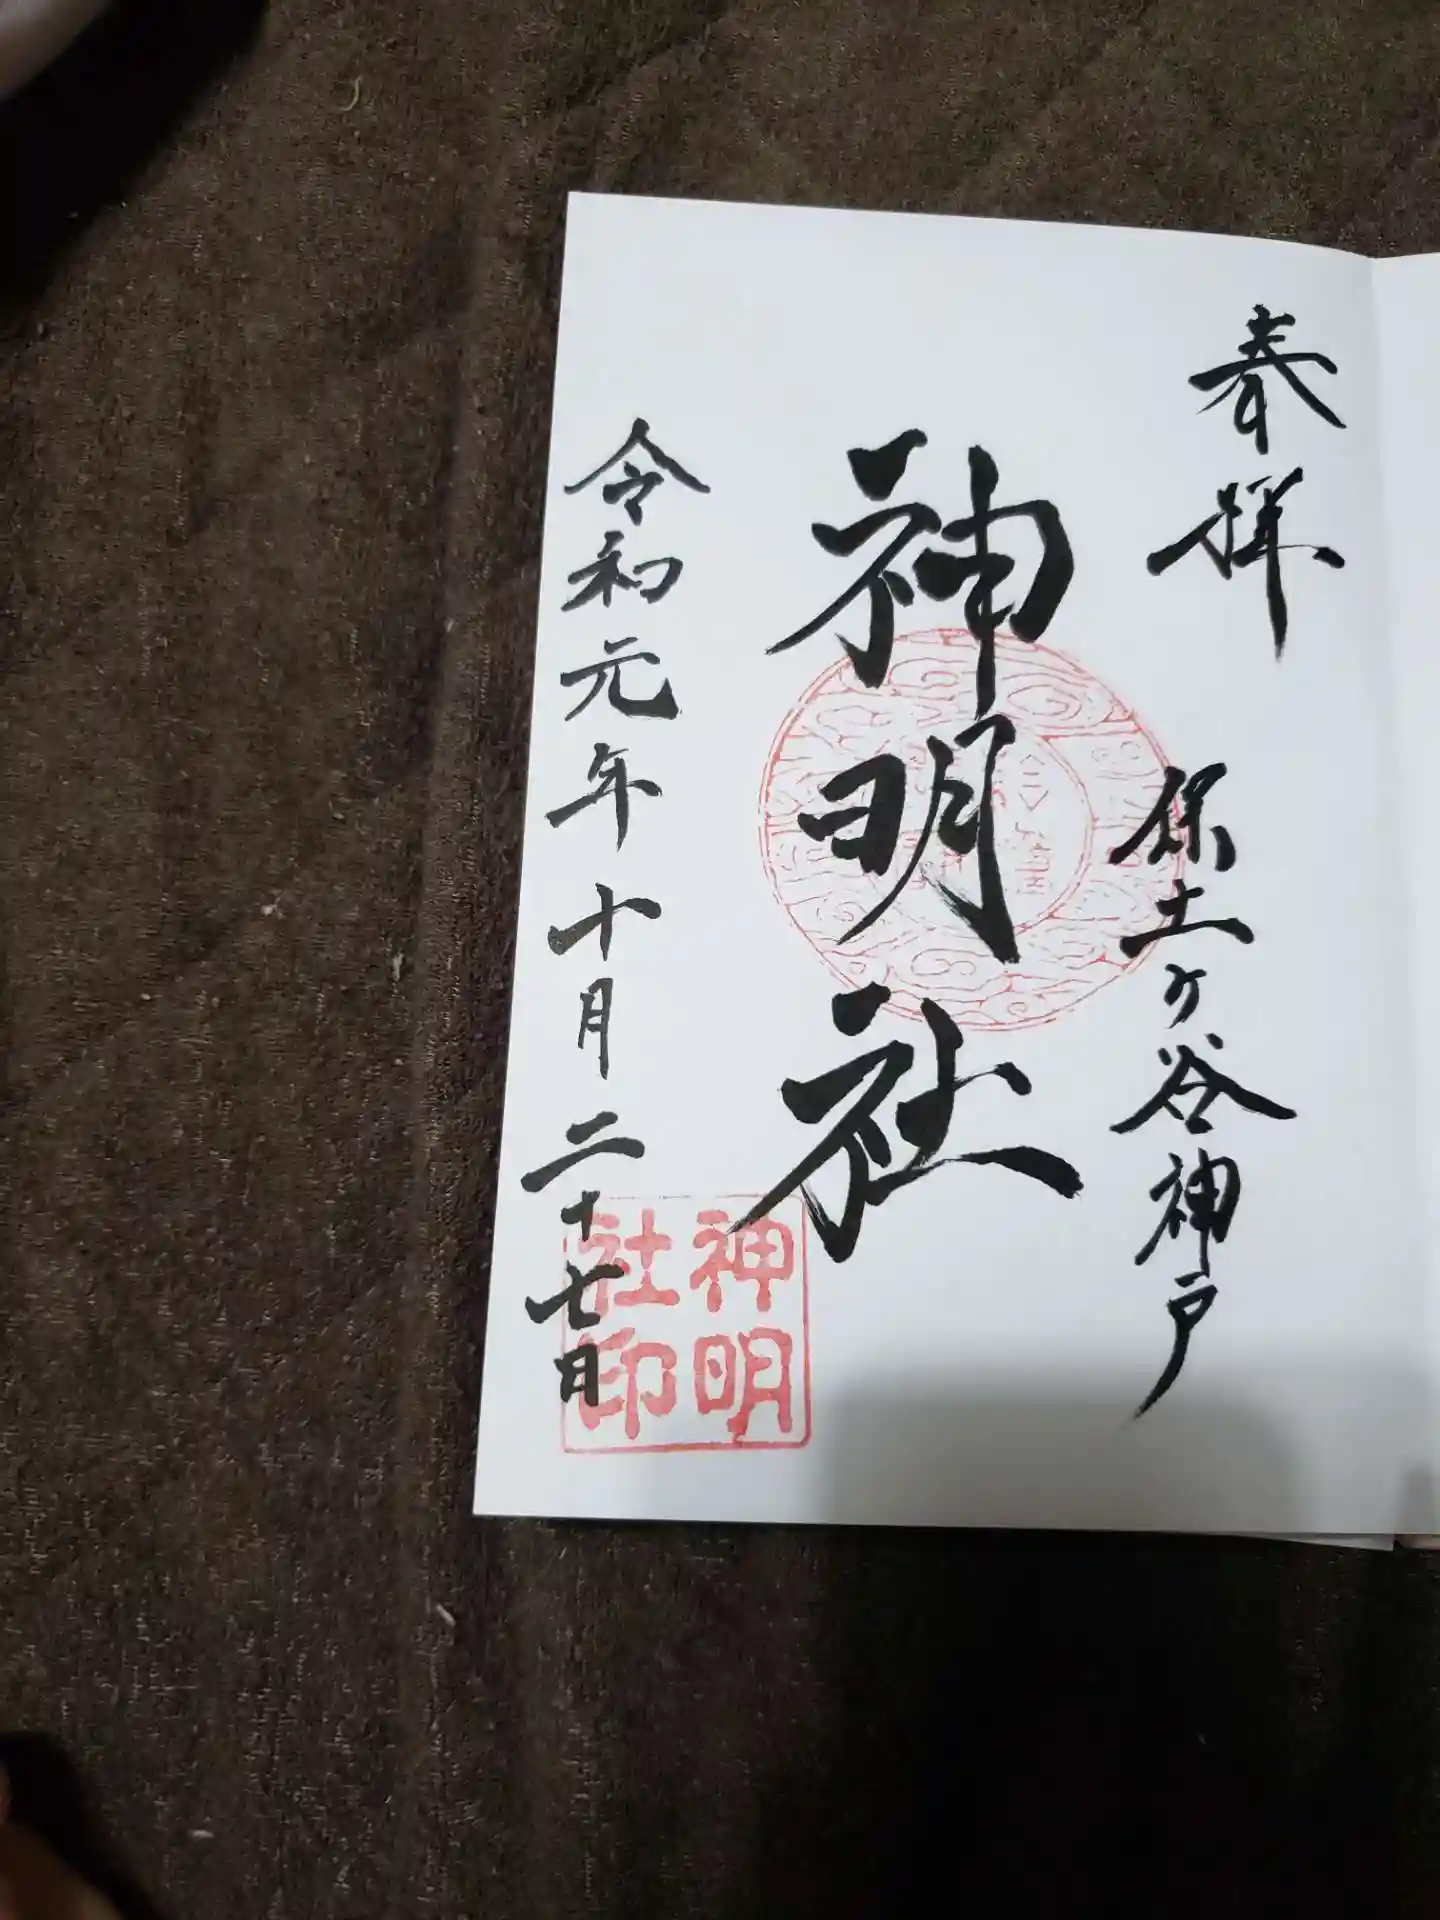 奉拝
保土ケ谷神戸
神明社
令和元年十月二十七日
神明
社印